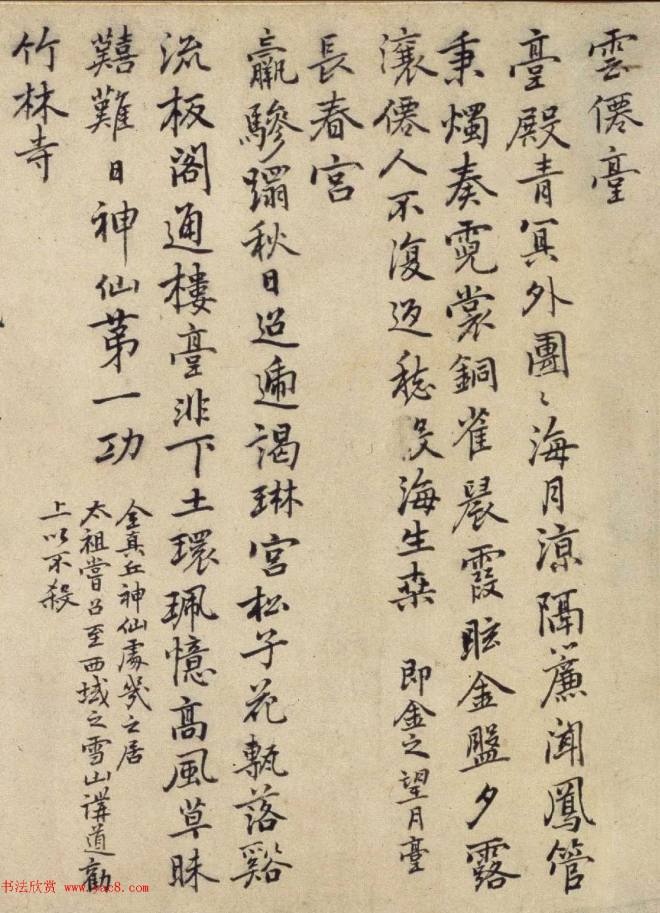 雲僊臺
臺殿青冥外團〻海月涼隔簾聞鳳管
秉燭奏霓裳銅雀晨霞眩金盤夕露
瀼僊人不復返愁見海生桒 即金之望月臺
長春宮
羸驂踏秋日迢遞謁琳宮松子花甎落谿
流板閣通樓臺非下土環珮憶高風草昧
囏難日神仙第一功
全真丘神仙處幾之居
太祖嘗召至西域之雪山講道勸
上以不殺
竹林寺
书法欣赏 www.yac8.com